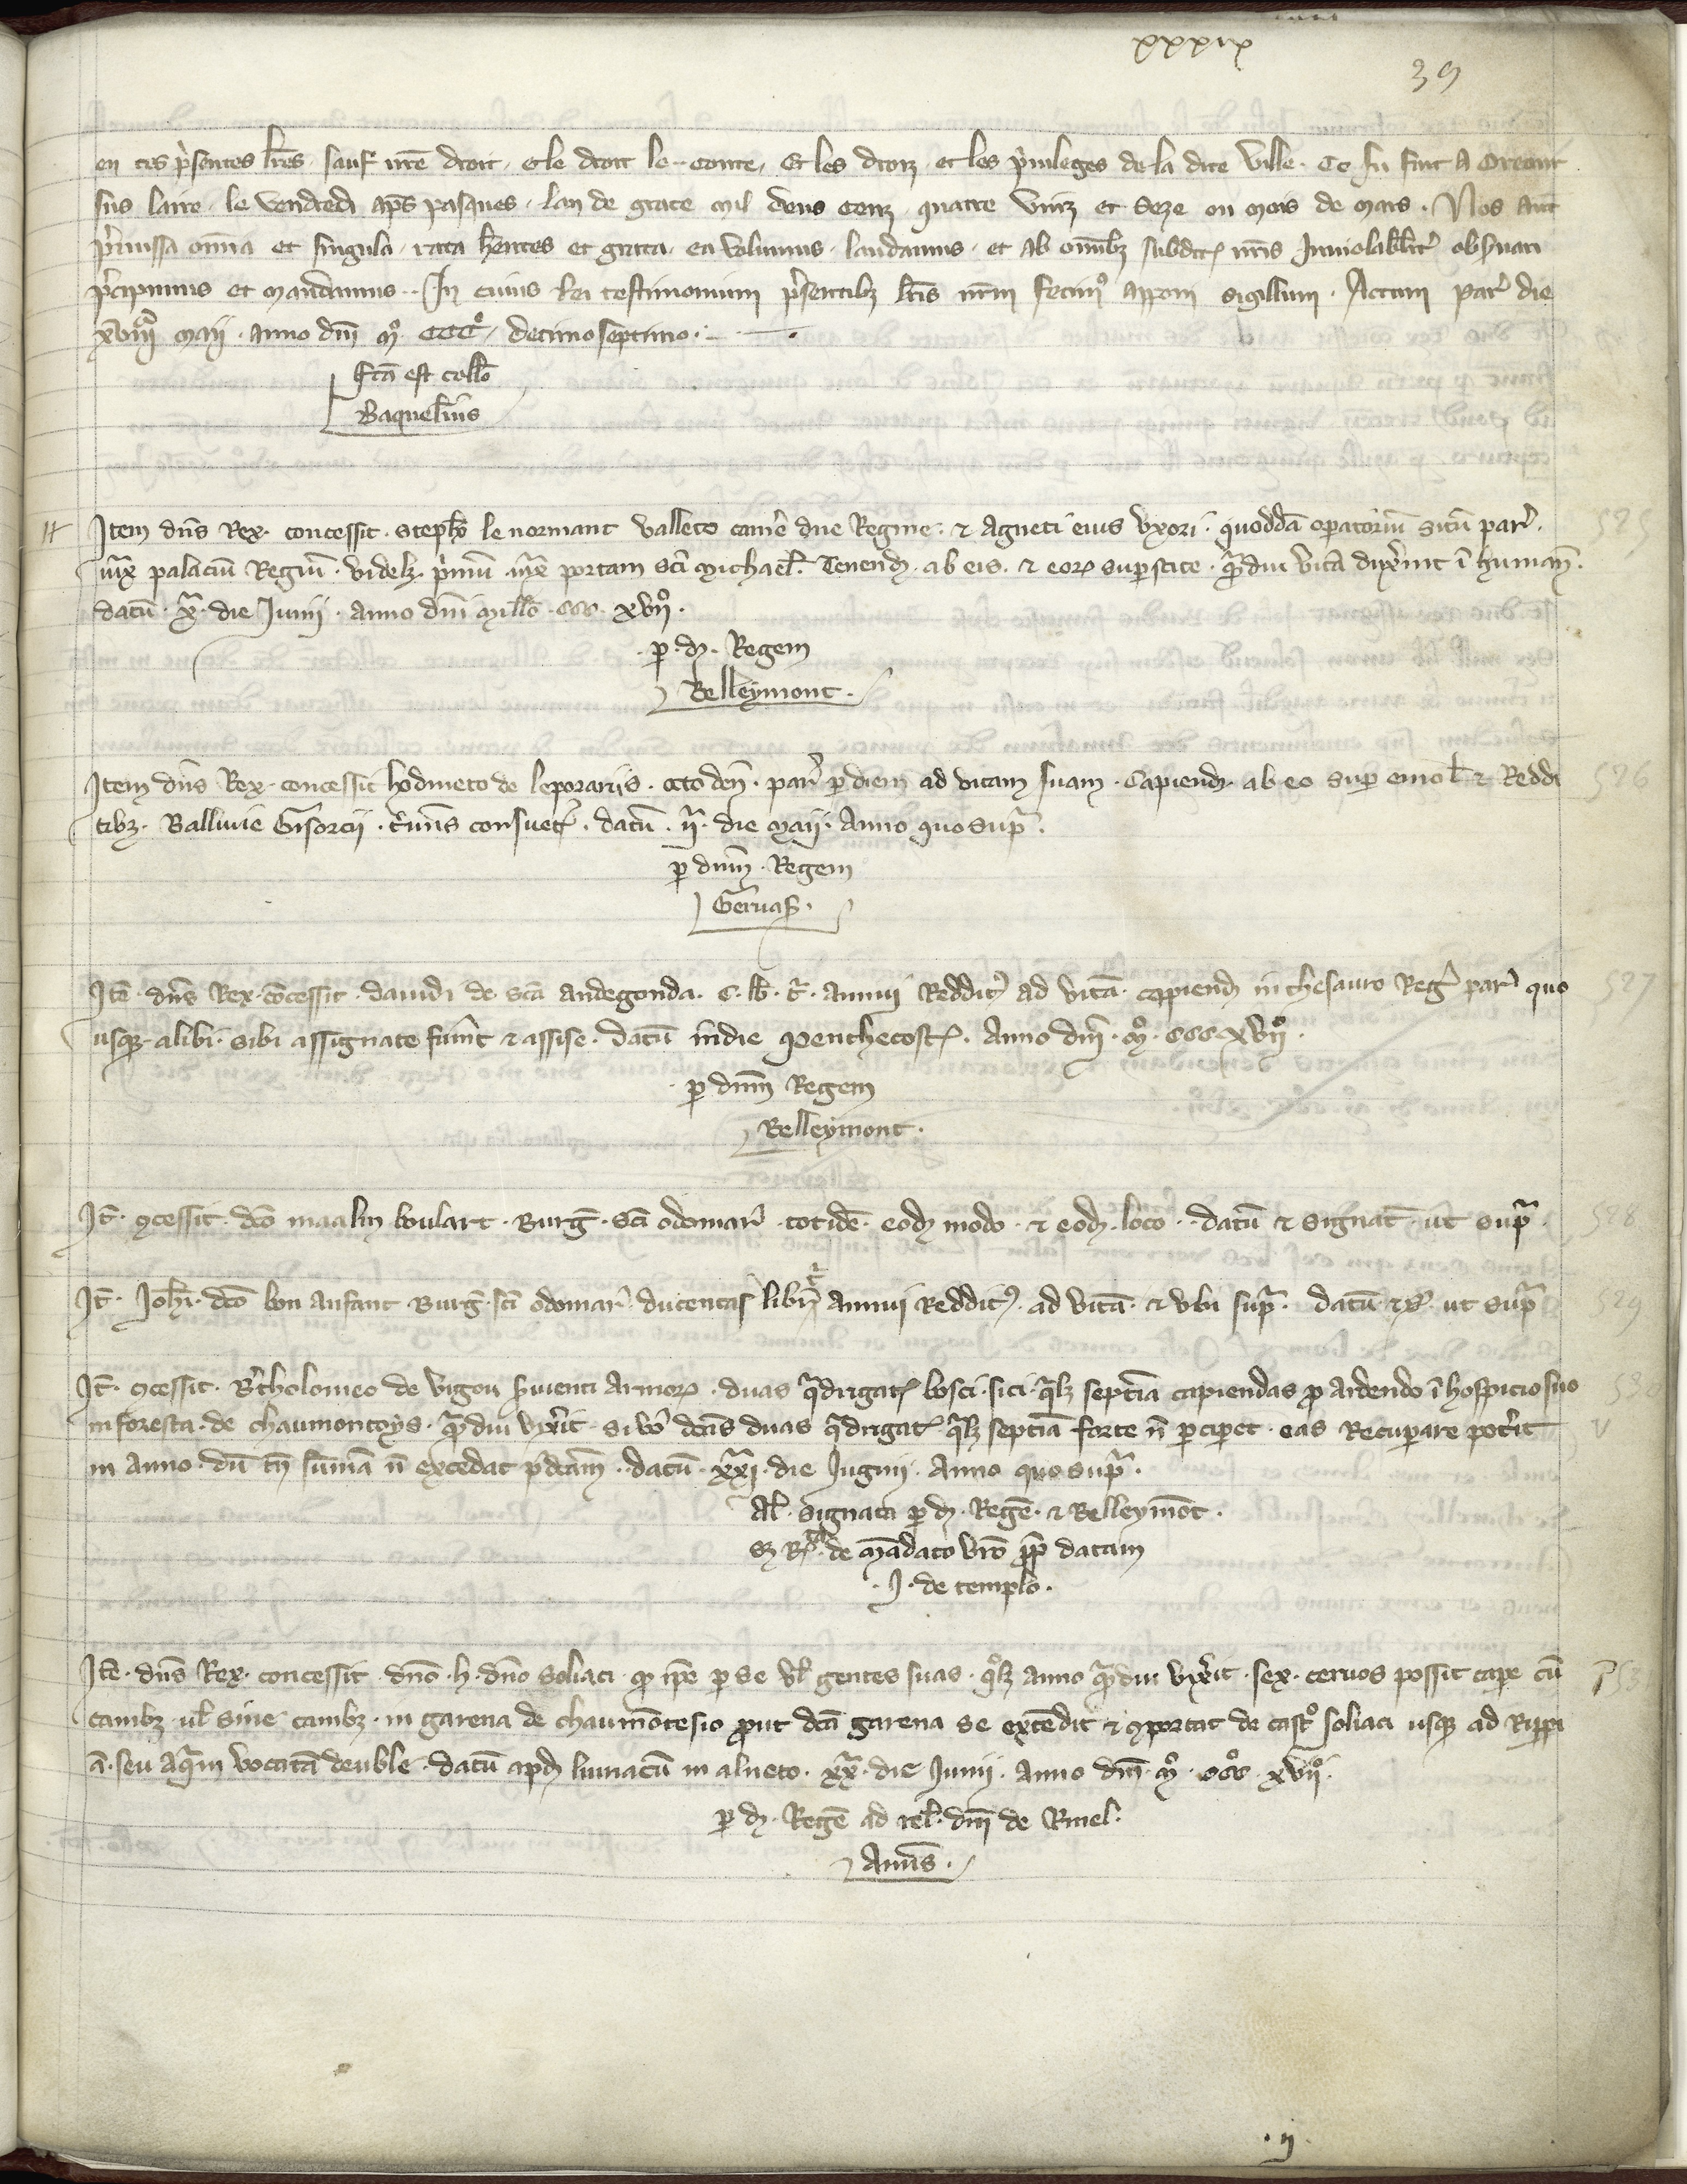 xxxix
39
en ces p̾sentes lr̃es sauf nr̃e droit, et le droit le conte, Et les droiz et les p̾uileges de la dite ville. Ce fu fait A Creont
sus laire le vendredi ap̃s pasques lan de grace mil deus cenz quatre vinz et seze ou mois de mars. Nos aut̃
p̾missa om̃ia et singula rata hñtes et grata ea volumus laudamus et ab om̃ibꝫ subditꝭ nr̃is Inuiolabil̃it̾ obs̾uari
p̾cipimus et mandamus. In cuius Rei testimonium p̾sentibꝫ lr̃is nr̃m fecimꝰ apponi sigillum. Actum par̾ die
xviiiª maij anno dñi mº CCCº decimoseptimo.
fc̃a est coll̃o
Baquel̃ius
Item dñs Rex concessit steph̃o le normant valleto cam̾e dñe Regine. & Agneti eius vxori. quoddã op̱atoriũ sitũ par̾.
iux̃ palaciũ Regiũ. videlꝫ p̾mũ iux̃ portam sc̃i Michael̃. Tenendꝫ ab eis & eoꝝ sup̱stite q̃ᵃdiu vitã dux̾int ĩ humañ.
datũ xª die Junij anno dñi mill̃o CCC xvijº.
p̱ dꝫ Regem
Belleymont.
Item dñs Rex concessit hodineto de leporariis octo deñ par̾ p̱ diem ad vitam suam. Capiendꝫ ab eo sup̱ emol̃ & Reddi
tibꝫ Balliuie Gisorcij t̾mis consuetꝭ. datũ ij die maij. Anno quo supᵃ.
p̱ dñm Regem
Geruaš.
Itẽ dñs Rex cõcessit dauidi de sc̃a andegonda C lb̃ t̾ annui Redditꝰ ad vitã capiendꝫ in thesauro Reg̾ par̾ quo
usqꝫ alibi sibi assignate fũint & assise. datũ in die Penthecostꝭ. Anno dñi mº CCC xvijº.
p̱ dñm Regem
Belleymont.
It̃ ꝯcessit dc̃o maalin boulart Burg̃ sc̃i odomar̾ totidẽ eodꝫ modo & eodꝫ loco. datũ & signat̃ ut supᵃ.
It̃ Joh̃i dc̃o bon anfant Burg̃ sc̃i odomar̾ ducentas libr̃ t̾ annui Redditꝰ ad vitã & vbi supᵃ. datũ &c̃ ut supᵃ
It̃ ꝯcessit B̾tholomeo de vigou s̾uienti Armoꝝ duas qᵃdrigatꝭ bosci sici qᵃlꝫ septiᵃã capiendas ꝓ Ardendo ĩ hospicio suo
in foresta de chaumontoys qᵃdiu vix̾it. si vº dc̃is duas qᵃdrigatꝭ qᵃlꝫ septiᵃã forte ñ p̱cip̱et eas Recup̱are pot̾it
in anno dũ tñ sum̃ã ñ excedat p̾dc̃am. datũ xxjª die Jugnij Anno quo supᵃ.
Al̃ signata p̱ dꝫ Regẽ & Belleymõt.
de mãdato vr̃o datam
J. de templo.
Itẽ dñs Rex concessit dñõ h dño soliaci qꝫ ip̃e p̱ se vl̃ gentes suas qᵒlꝫ anno qᵃdiu vix̾it sex ceruos possit cap̱e cũ
canibꝫ ul̃ sine canibꝫ in garena de chaumõtesio ꝓut dc̃a garena se extẽdit & ꝯportat de castº soliaci usqꝫ ad Ripp̱i
ã seu aqᵃm vocatã deuble. datũ apdꝫ lumacũ in alneto xxª die Junij. Anno dñi mº CCCº xvijº.
p̱ dꝫ Regẽ ad rel̃ dñi de Rinel.
Amĩs.
525
526
527
528
529